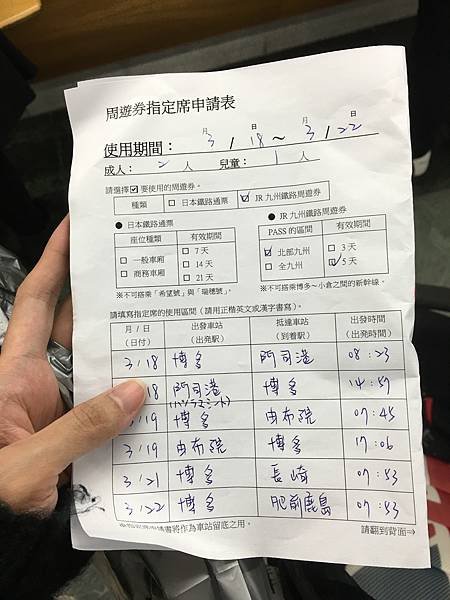 周遊券指定席申請表
使用期間： 3 月 / 18 日 ～ 3 月 / 22 日
成人： 2 人 兒童： 1 人
請選擇☑要使用的周遊券。
種類 □ 日本鐵路通票 ☑ JR 九州鐵路周遊券
● 日本鐵路通票
座位種類 有效期間
□ 一般車廂
□ 商務車廂
□ 7 天
□ 14 天
□ 21 天
※不可搭乘「希望號」與「瑞穗號」。
● JR 九州鐵路周遊券
PASS 的區間 有效期間
☑ 北部九州
□ 全九州
□ 3 天
☑ 5 天
※不可搭乘博多～小倉之間的新幹線。
請填寫指定席的使用區間（請用正楷英文或漢字書寫）。
月 / 日 出發車站 抵達車站 出發時間
（日付） （出発駅） （到着駅） （出発時間）
3/18 博多 門司港 08:23
18 門司港 博多 14:57
3/19 博多 由布院 07:45
3/19 由布院 博多 17:06
3/21 博多 長崎 07:53
3/22 博多 肥前鹿島 07:53
將作為車站留底之用。 請翻到背面⇒